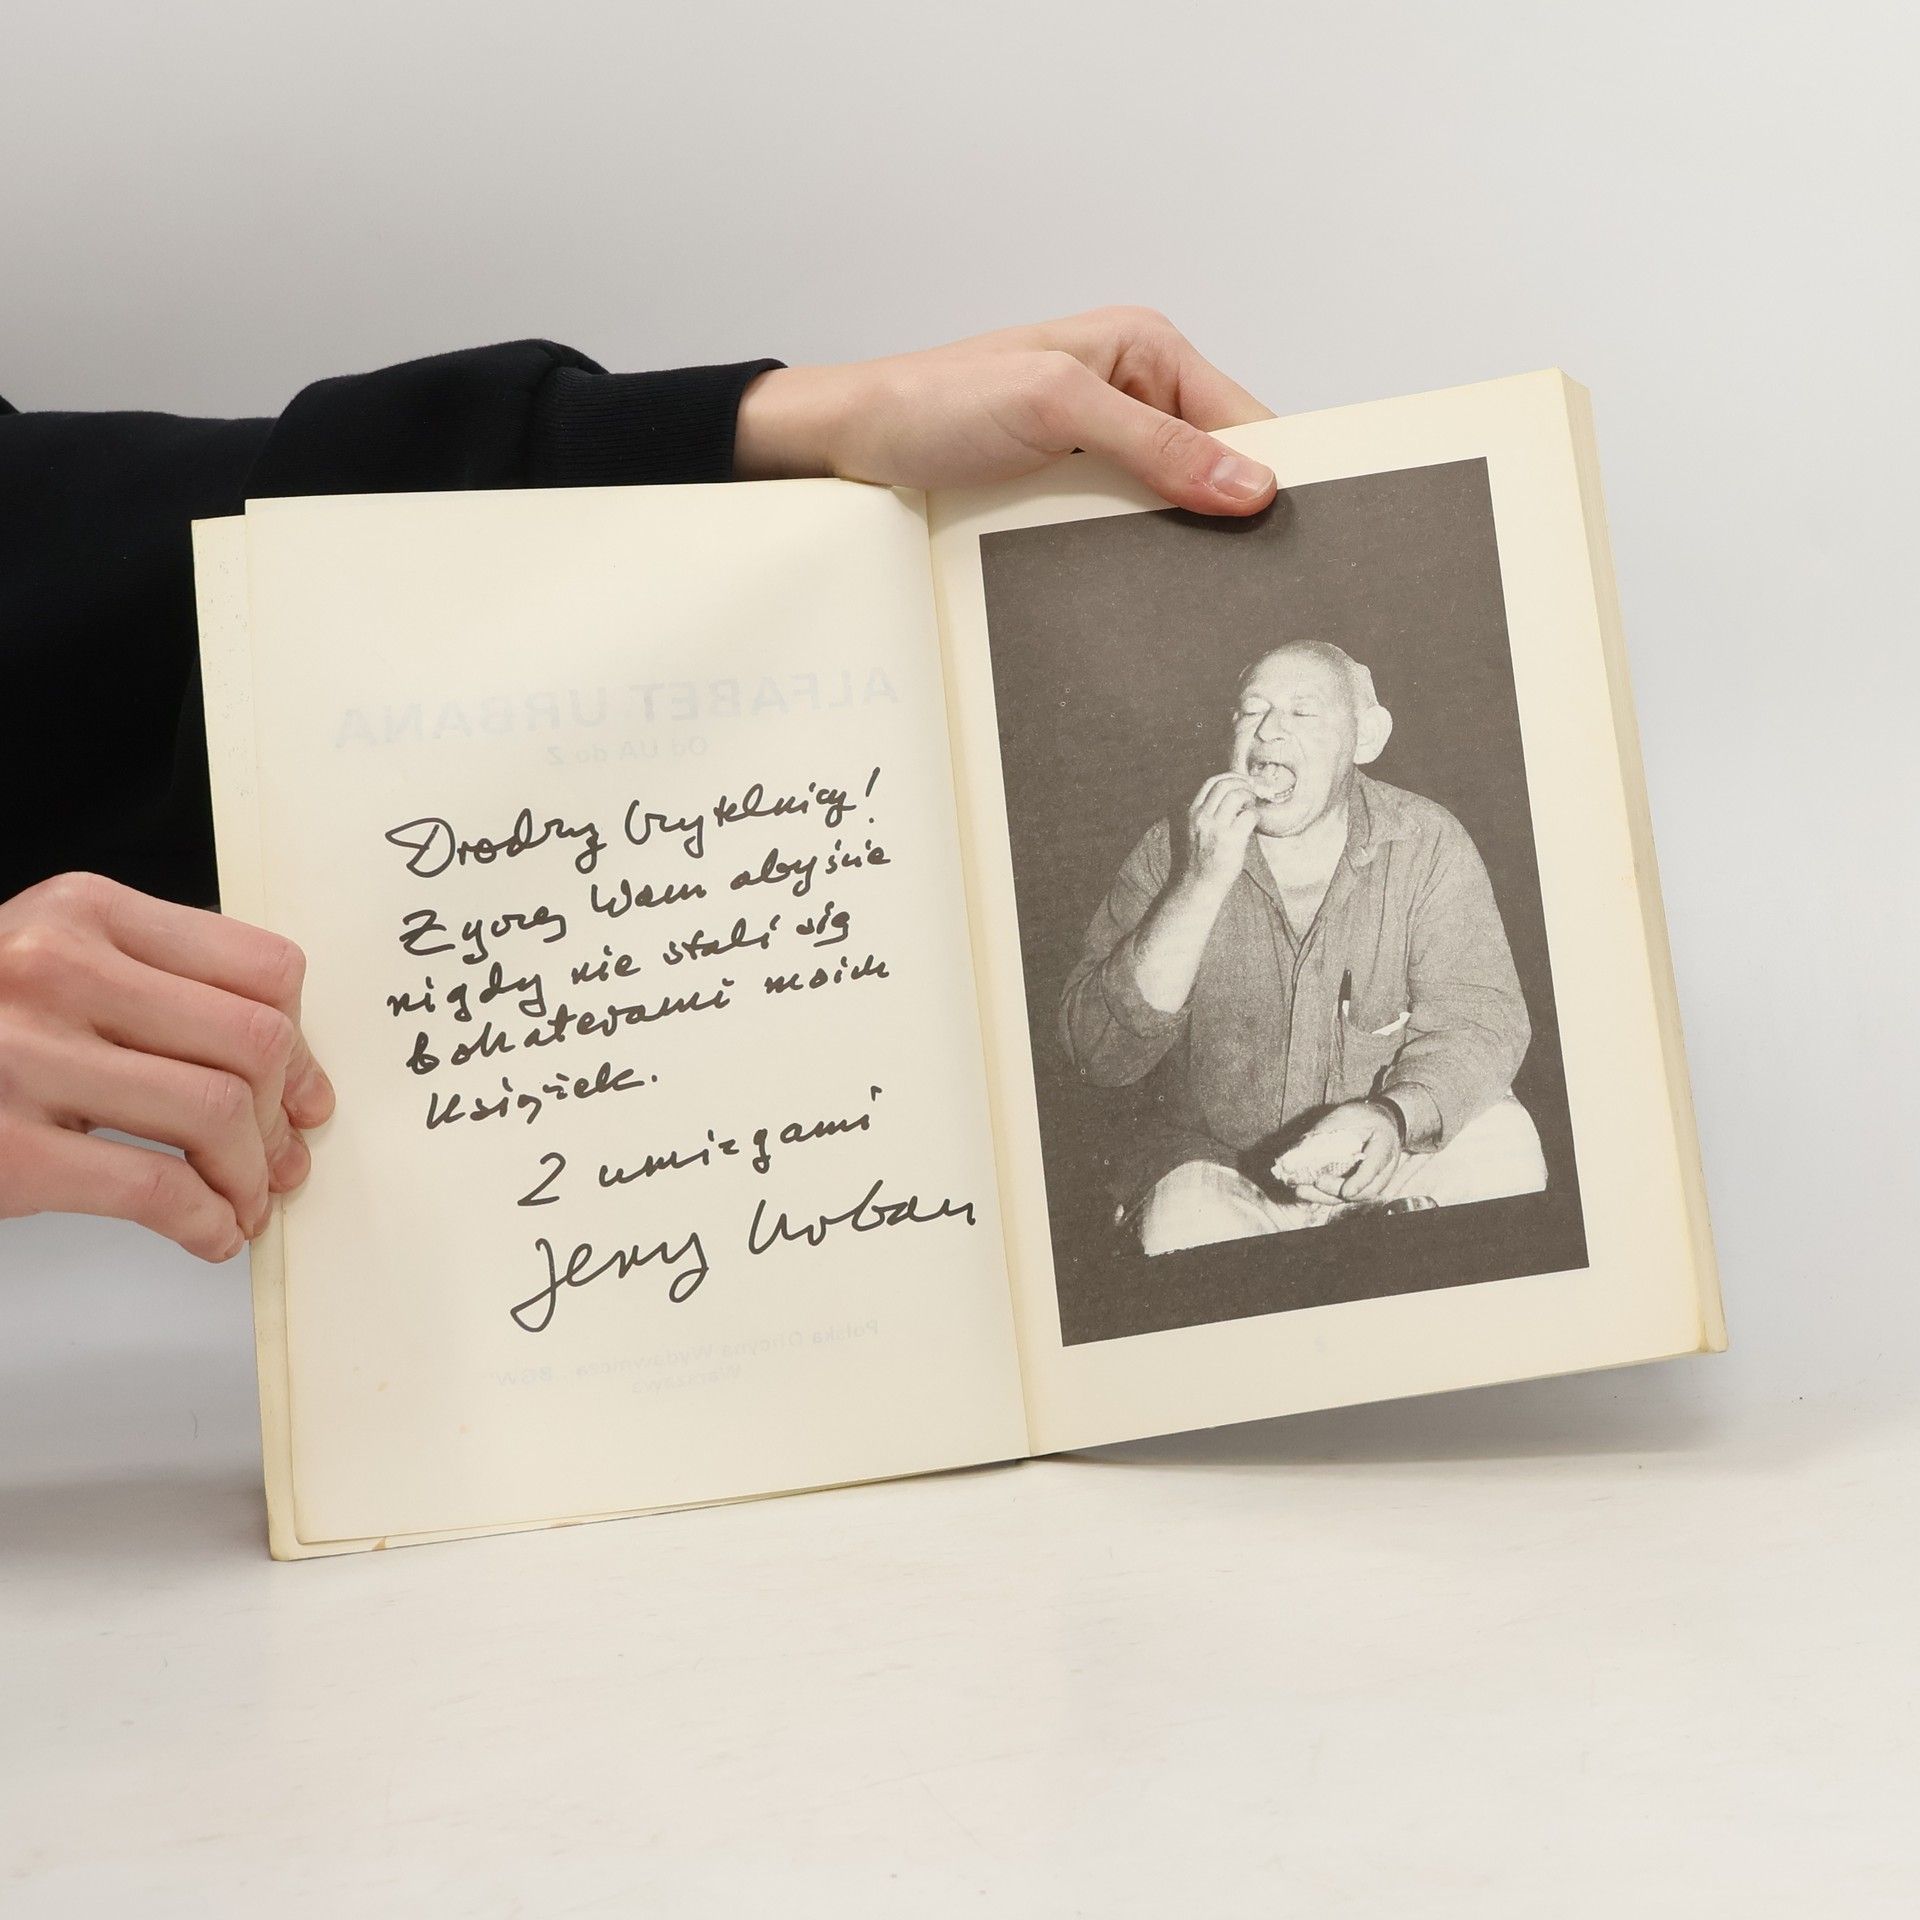 ALFABET URBANA
Od UA do Z
Drodzy Czytelnicy!
Życzę Wam abyście
nigdy nie stali się
bohaterami moich
książek.
Z umizgami
Jerzy Urban
Polska Oficyna Wydawnicza „BGW”
Warszawa